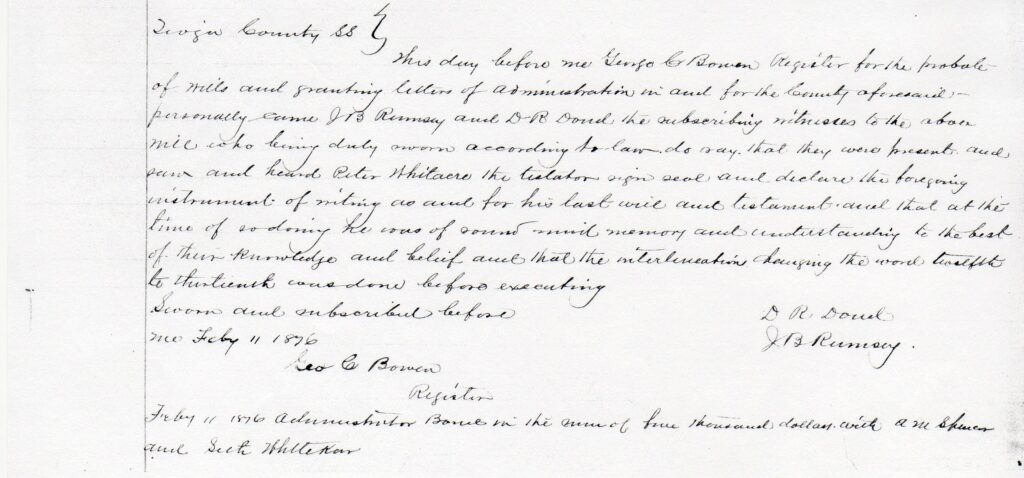 Tioga County SS
This day before me George C Bowen Register for the probate
of wills and granting letters of administration in and for the County aforesaid -
personally came J B Rumsey and D R Doud the subscribing witnesses to the above
will who being duly sworn according to law do say that they were present and
saw and heard Peter Whitacre the testator sign seal and declare the foregoing
instrument of writing as and for his last will and testament and that at the
time of so doing he was of sound mind memory and understanding to the best
of their knowledge and belief and that the interlineation changing the word twelfth
to thirteenth was done before executing
Sworn and subscribed before
me Feby 11 1876
D R Doud
J B Rumsey.
Geo C Bowen
Register
Feby 11 1876 Administrator Bond in the sum of thousand dollars with A M Spencer
and Seth Whiteker